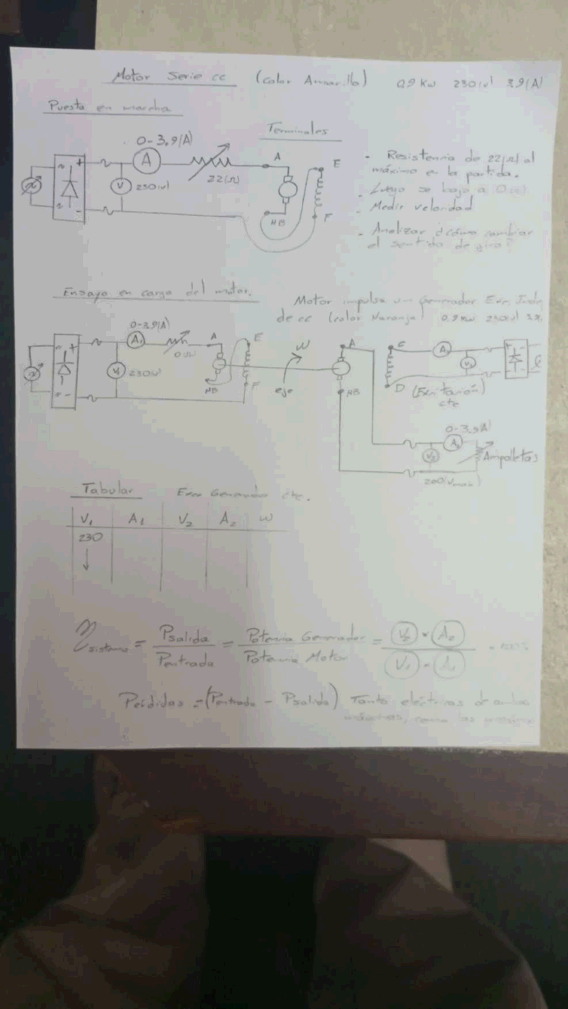 Motor Serie cc (Color Amarillo) 0,9 Kw 230(v) 3,9(A)
Puesta en marcha
Terminales
0-3.9(A)
A
A
E
V
230(v)
22(Ω)
NB
F
• Resistencia de 22(Ω) al
máximo en la partida.
• Luego se baja a 0(Ω)
• Medir velocidad
• Analizar ¿cómo cambiar
el sentido de giro?
Ensayo en carga del motor.
Motor impulsa un Generador Exn. Indp.
de cc (color Naranjo) 0,9 Kw 230(v)
0-3.9(A)
A1
A
E
V1
230(v)
NB
F
eje
W
A
C
A
NB
D (Excitación)
cte
0-3,9(A)
A2
V2
Ampolletas
Tabular Exn Generador cte.
V1 A1 V2 A2 W
230
η sistema = Psalida / Pentrada = Potencia Generador / Potencia Motor = V2 • A2 / V1 • A1
Pérdidas = (Pentrada - Psalida) Tanto eléctricas de ambas
máquinas, como las